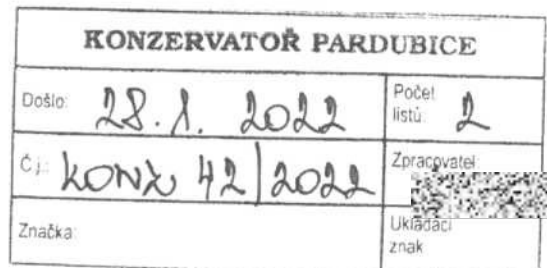 KONZERVATOŘ PARDUBICE
Došlo: 28. 1. 2022
Počet listů: 2
Č.j.: KONZ 42/2022
Zpracovatel:
Značka:
Ukládací znak